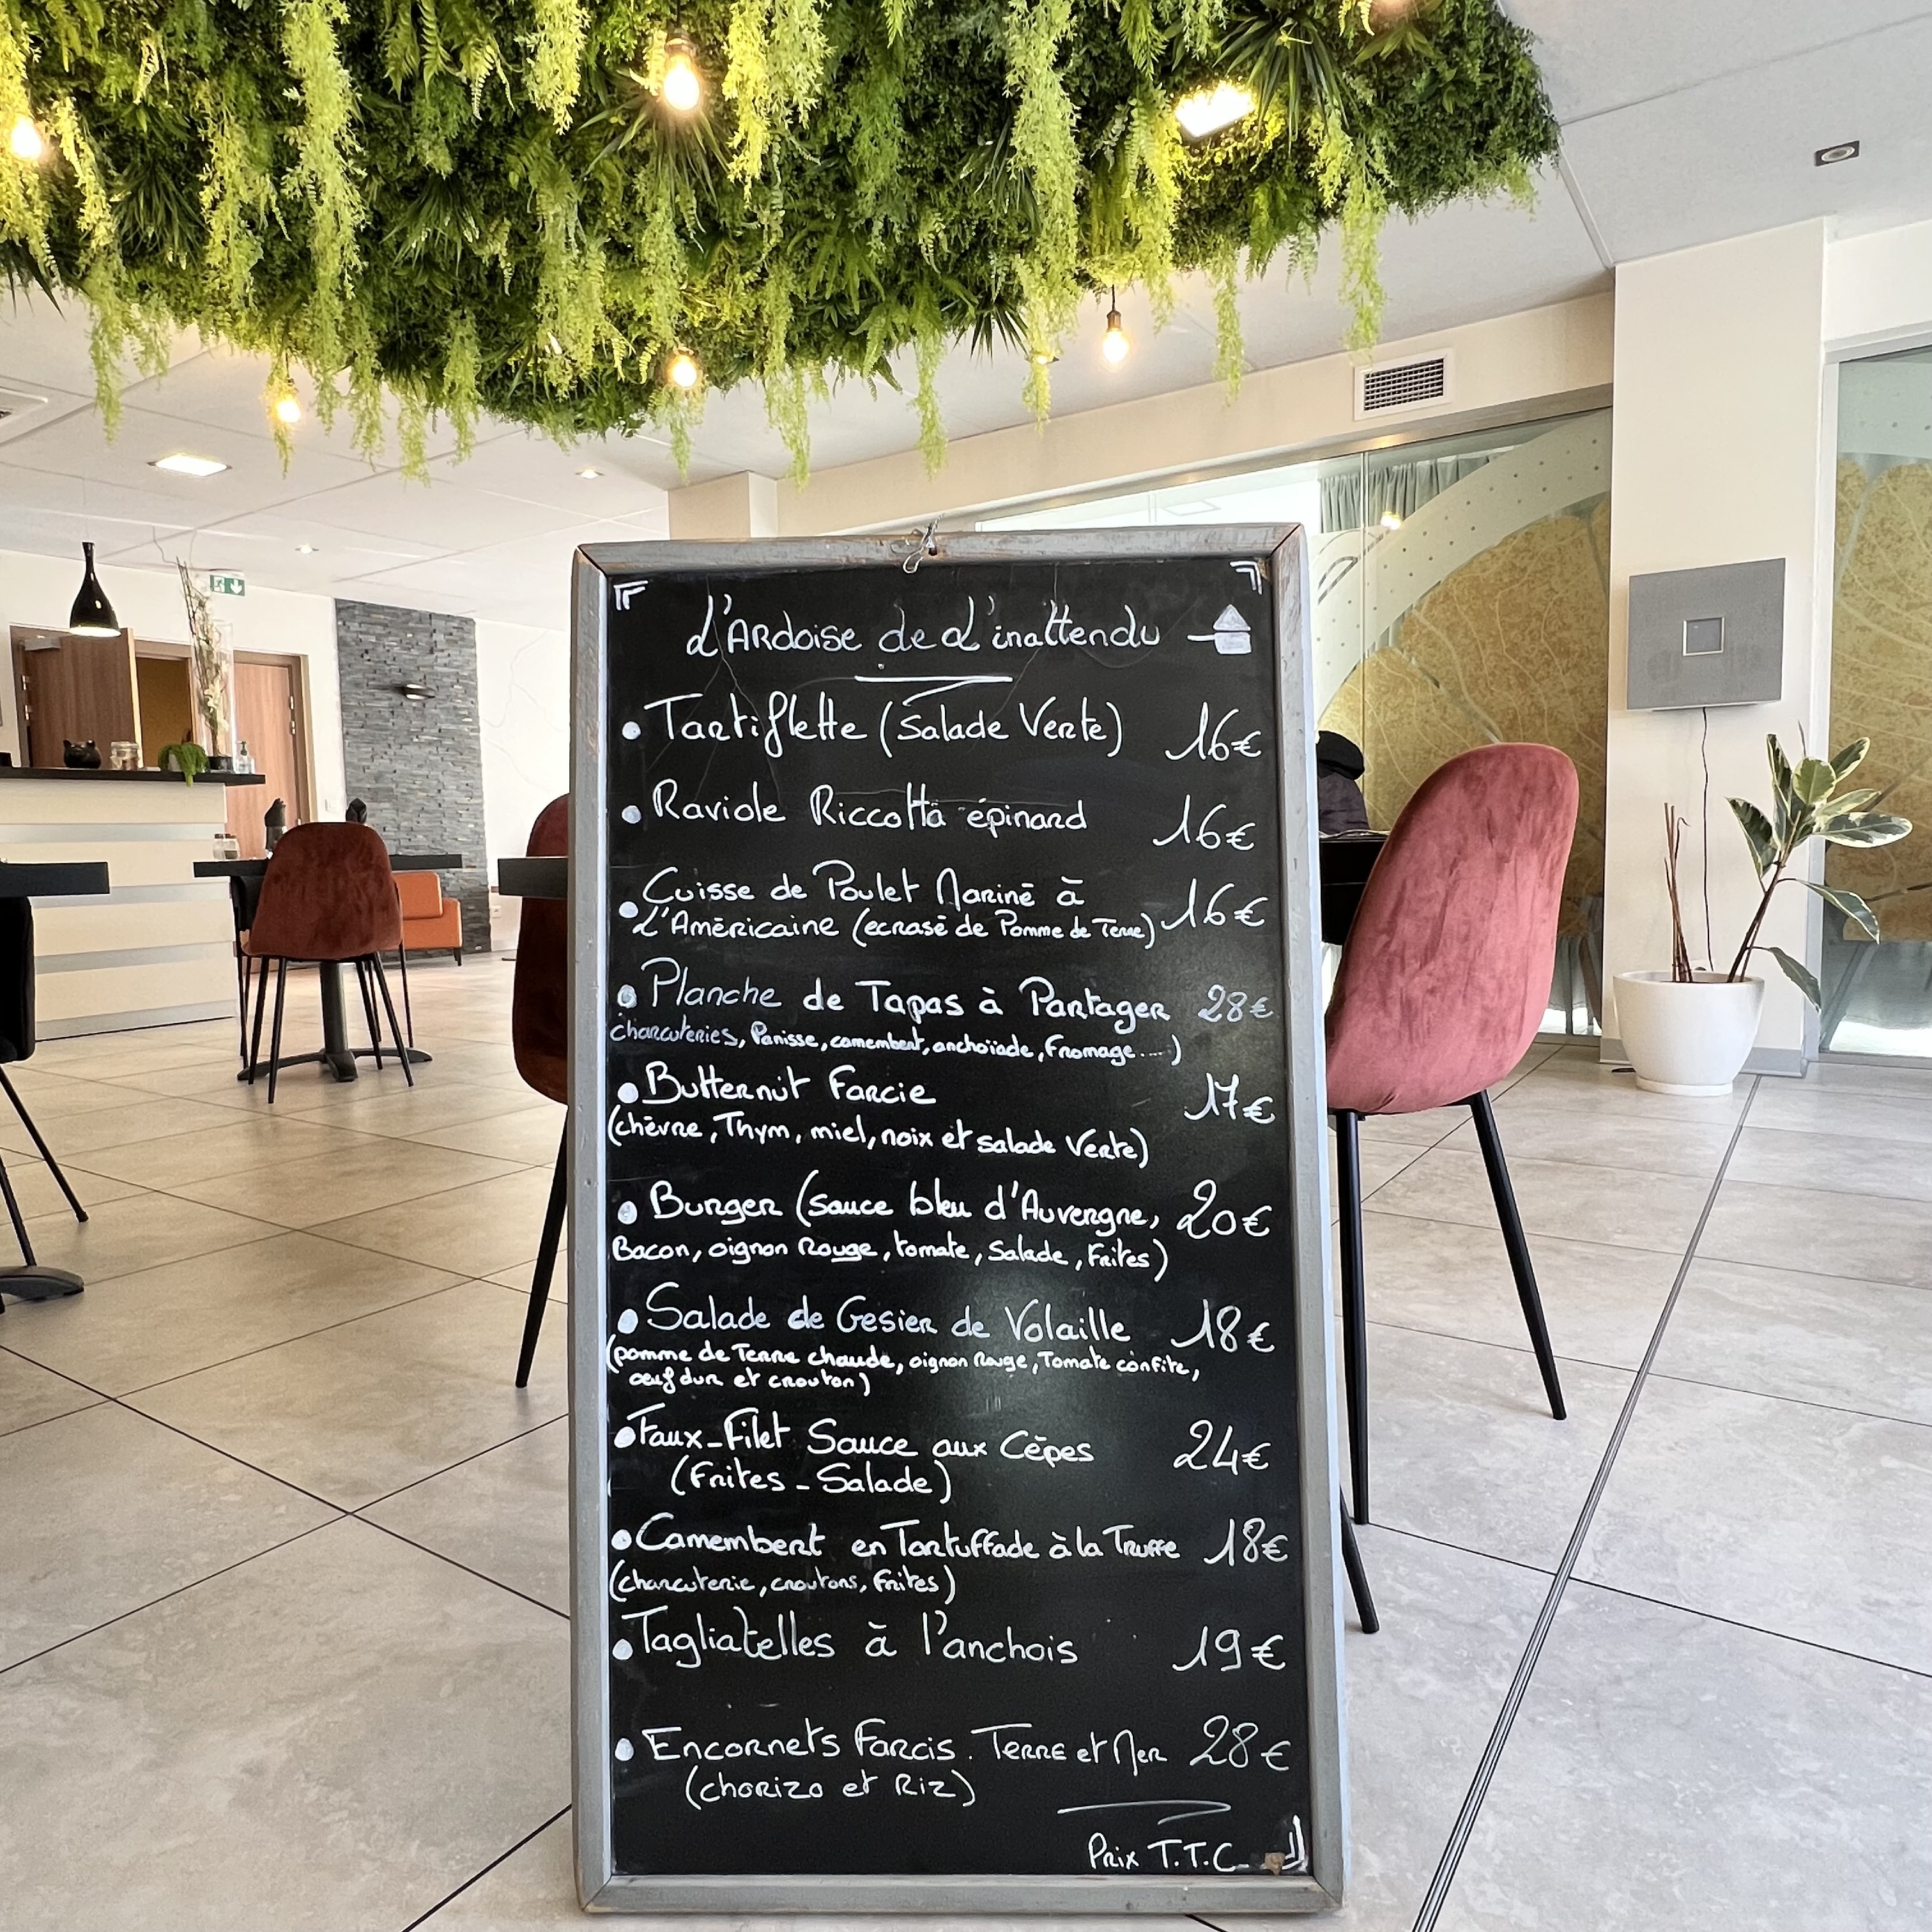 L'Ardoise de L'inattendu
• Tartiflette (Salade Verte) 16€
• Raviole Riccotta épinard 16€
• Cuisse de Poulet Mariné à
L'Américaine (ecrasé de Pomme de Terre) 16€
• Planche de Tapas à Partager 28€
charcuteries, Panisse, camembert, anchoïade, Fromage....)
• Butternut Farcie 17€
(chèvre, Thym, miel, noix et salade Verte)
• Burger (sauce bleu d'Auvergne, 20€
Bacon, oignon Rouge, tomate, Salade, Frites)
• Salade de Gesier de Volaille 18€
(pomme de Terre chaude, oignon Rouge, Tomate confite,
œuf dur et crouton)
• Faux-Filet Sauce aux Cèpes 24€
(Frites - Salade)
• Camembert en Tartuffade à la Truffe 18€
(charcuterie, croutons, frites)
• Tagliatelles à l'anchois 19€
• Encornets Farcis. Terre et Mer 28€
(chorizo et Riz)
Prix T.T.C